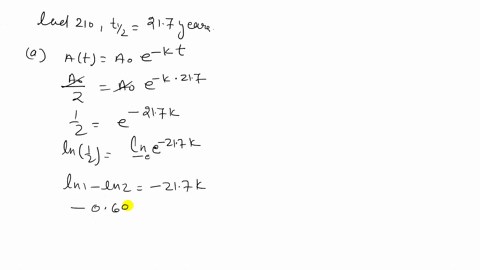 Lead 210, t₁/₂ = 21.7 years.
(a) A(t) = A₀ e^{-kt}
A₀/2 = A₀ e^{-k·21.7}
1/2 = e^{-21.7k}
ln(1/2) = ln e^{-21.7k}
ln1 - ln2 = -21.7k
- 0.60